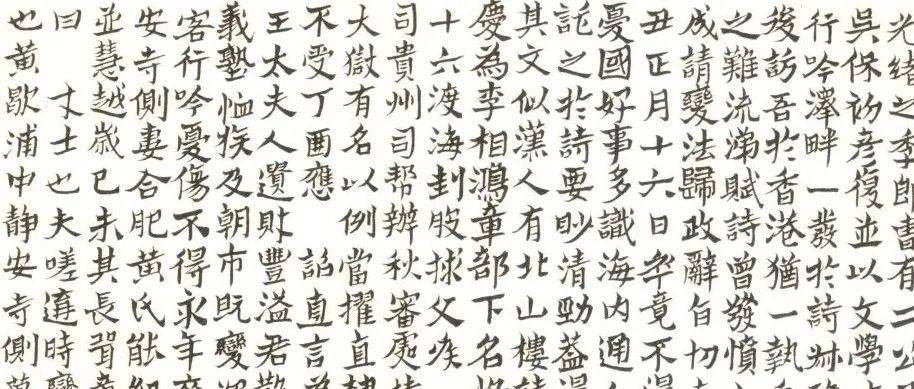 光緒之季郎曹有二公
吳保初彦復並以文學
行吟澤畔一發於詩
後訪吾於香港猶一執
之難流涕賦詩曾發憤
成請變法歸政辭旨切
丑正月十六日卒竟不得
憂國好事多識海内通人
託之於詩要眇清勁蓋得
其文似漢人有北山樓
慶為李相鴻章部下名
十六渡海刲股捄父疾
司貴州司幫辦秋審處
大獄有名以例當擢直
不受丁酉應 詔直言
王太夫人遺財豐溢君
義塾恤族及朝市既變
客行吟憂傷不得永年卒
安寺側妻合肥黃氏能
並慧越歲已未其長壻
曰 丈士也夫嗟遘時變
也黃歇浦中靜安寺側